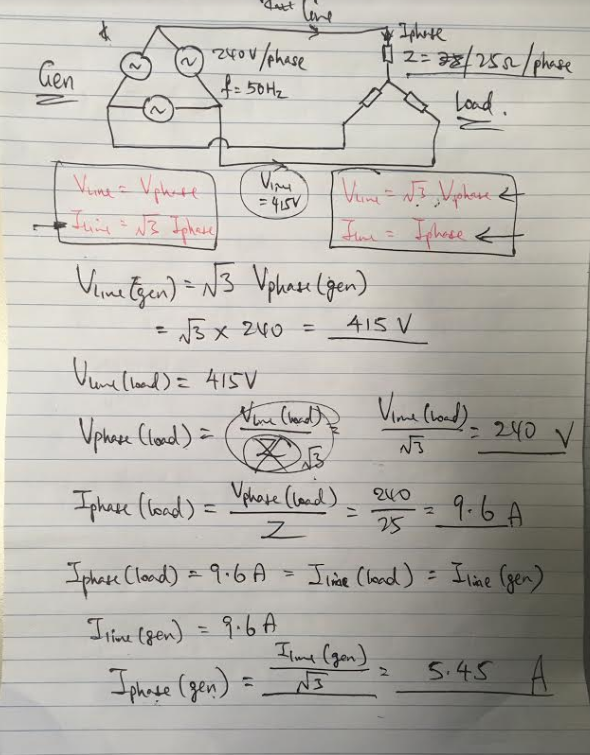 Line
Iphase
240V/phase
Z = 25Ω/phase
Gen
f = 50Hz
Load.
Vline = Vphase
Vline = 415V
Vline = √3 Vphase
Iline = √3 Iphase
Iline = Iphase
Vline (gen) = √3 Vphase (gen)
= √3 × 240 = 415 V
Vline (load) = 415V
Vphase (load) = Vline (load) / √3 = Vline (load) / √3 = 240 V
Iphase (load) = Vphase (load) / Z = 240 / 25 = 9.6 A
Iphase (load) = 9.6 A = Iline (load) = Iline (gen)
Iline (gen) = 9.6 A
Iphase (gen) = Iline (gen) / √3 = 5.45 A